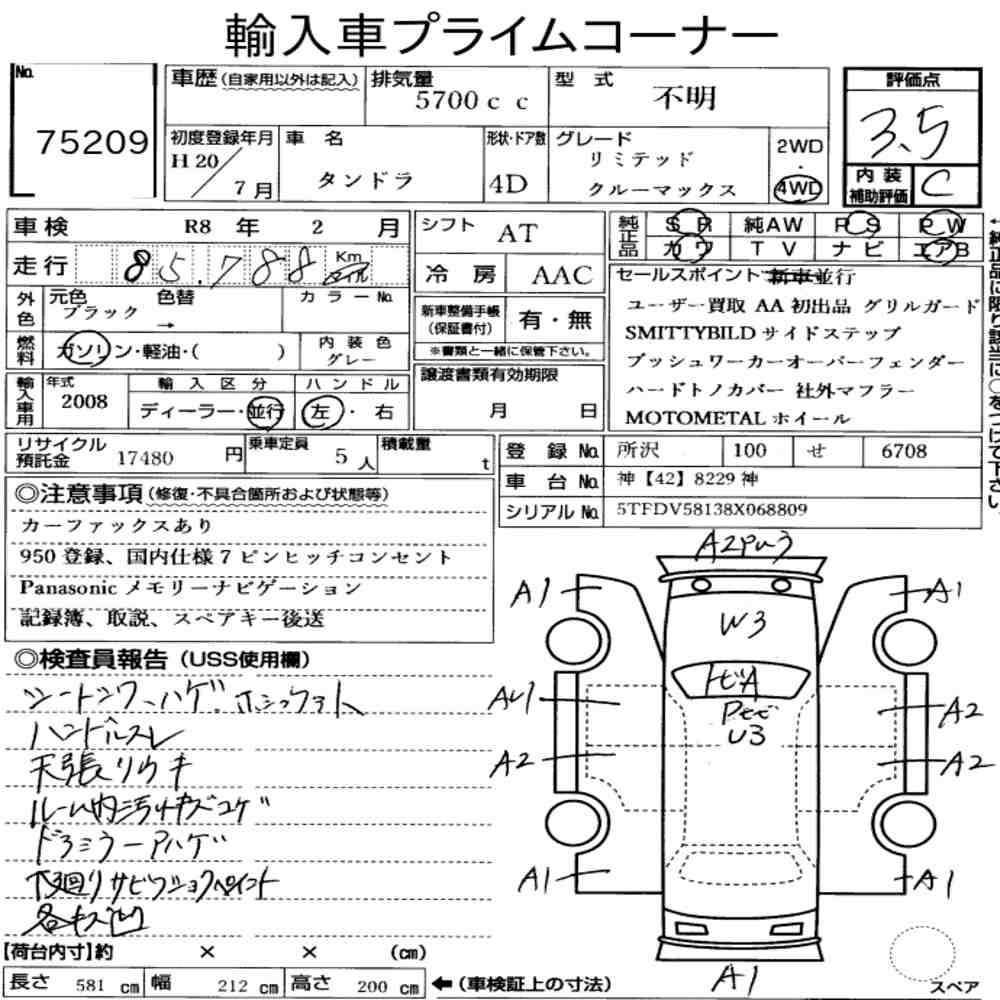 輸入車プライムコーナー
No.
75209
車歴(自家用以外は記入)
排気量
5700cc
型式
不明
評価点
3.5
初度登録年月
H20/7月
車名
タンドラ
形状・ドア数
4D
グレード
リミテッド
クルーマックス
2WD
・
4WD
内装
補助評価
C
車検 R8年 2月
シフト AT
純正品
SR 純AW PS PW
カワ TV ナビ エアB
走行 85,788 Km マイル
冷房 AAC
セールスポイント 新車並行
ユーザー買取 AA初出品 グリルガード
SMITTYBILDサイドステップ
ブッシュワーカーオーバーフェンダー
ハードトノカバー 社外マフラー
MOTOMETALホイール
外色
元色 色替 カラーNo.
ブラック →
新車整備手帳
(保証書付)
有・無
※書類と一緒に保管下さい。
燃料
ガソリン・軽油・( )
内装色
グレー
譲渡書類有効期限
月 日
輸入車用
年式
2008
輸入区分
ディーラー・並行
ハンドル
左・右
←純正品に限り該当に○をつけて下さい。
リサイクル
預託金 17480円
乗車定員 5人
積載量 t
登録No. 所沢 100 せ 6708
車台No. 神【42】8229神
シリアルNo. 5TFDV58138X068809
◎注意事項(修復・不具合箇所および状態等)
カーファックスあり
950登録、国内仕様7ピンヒッチコンセント
Panasonicメモリーナビゲーション
記録簿、取説、スペアキー後送
◎検査員報告(USS使用欄)
ハンドルスレ
天張りウキ
ドアミラーAハゲ
下廻りサビ
各キズ凹
A1
A1
W3
トビA
U3
A2
A2
A2
A1
A1
A1
【荷台内寸】約 × × (cm)
長さ 581 cm 幅 212 cm 高さ 200 cm ←(車検証上の寸法)
スペア